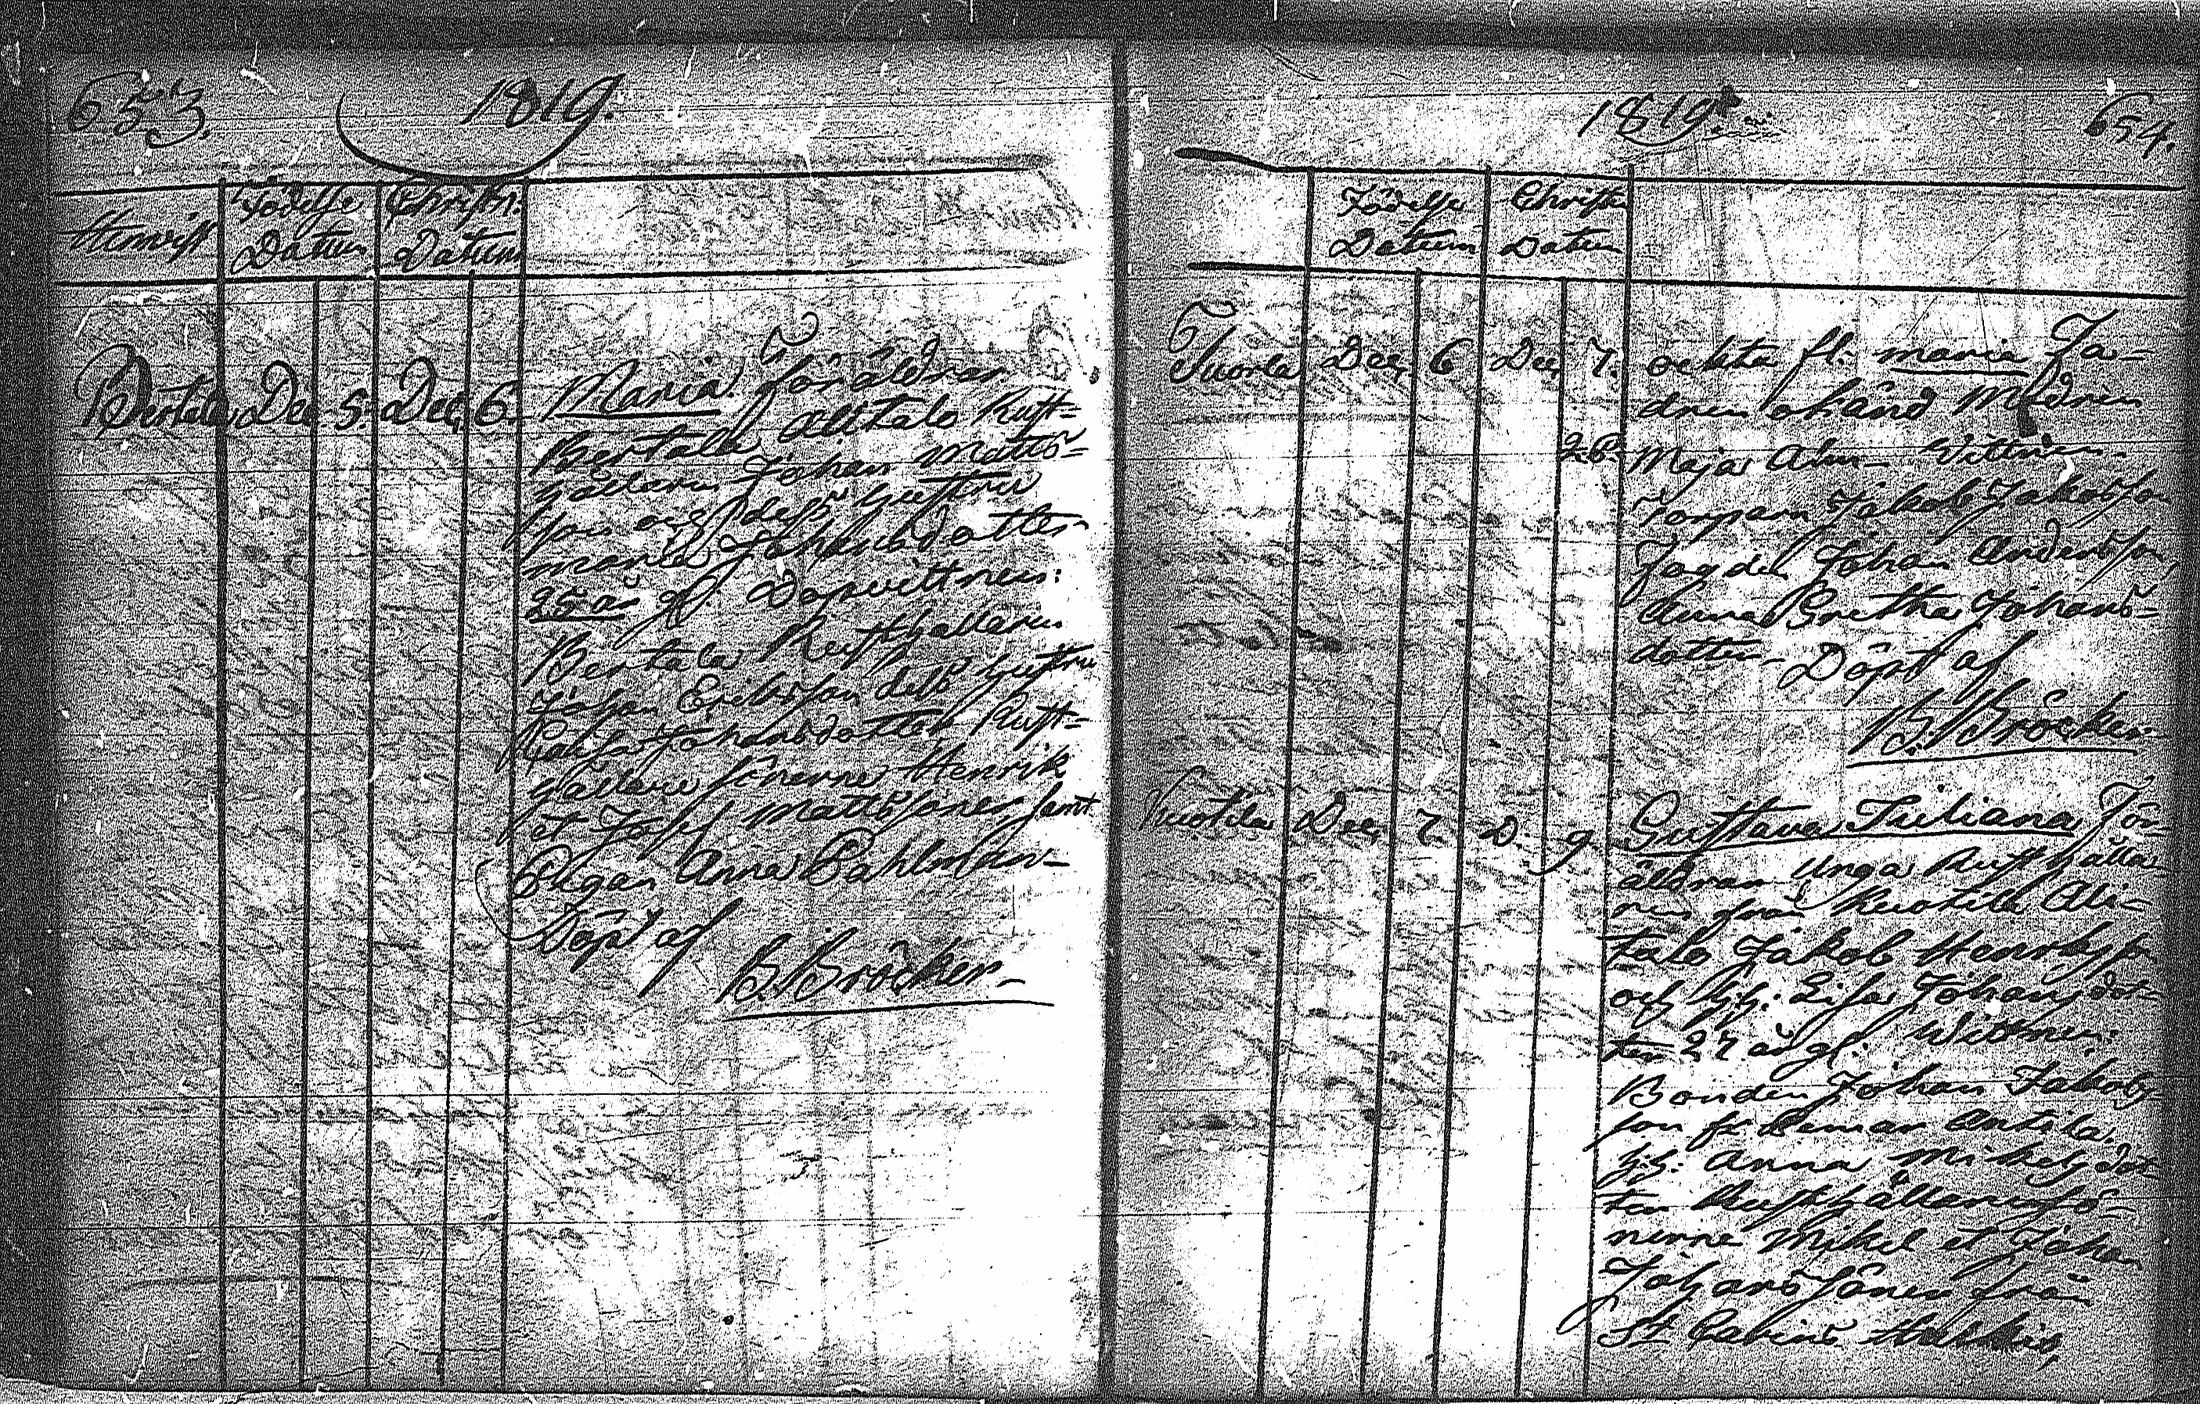 653.
1819.
Hemvist
Födelse
Datum
Christn.
Datum
Bertala Dec. 5. Dec. 6.
Maria. Föräldrar
Bertala Alitalo Rust=
hållaren Johan Matts=
son och dess hustru
Maria Johansdotter
25 år gl. Dopvittnen:
Bertala Rusthållaren
Johan Eriksson dess hustru
Johansdotter Rust=
hållare sönerne Henrik
et Josef Mattssöner, samt
Pigan Anna Pahlman
Döpt af
B. Bröcker
1819.
654.
Födelse
Datum
Christn
Datum
Tuorla Dec. 6 Dec. 7.
oekta fl. Maria Fa-
dren okänd Modren
26. Maja Alm- Vittnen
Torparn Jakob Jakobsson
Johan Andersson,
Anna Gretha Johans-
dotter- Döpt af
B. Bröcker
Kuotila Dec. 7. D. 9
Gustava Juliana För-
äldrar Unga Rusthålla-
ren från Kuotila Ali-
talo Jakob Henriksso
och h:h: Lisa Johansdot-
ter 27 år gl: Wittnen:
Bonden Johan Jakobs-
son fr Antila.
h:h: Anna Mikelsdot-
ter Rusthållaresö-
nerne Mikel et Johan
Johans Söner från
St